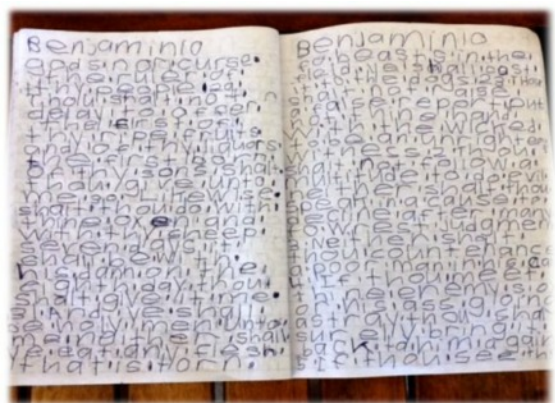 Benjaminio
gods nor curse
the ruler of
thy people
thou shalt not
delay to offer
the first of
thy ripe fruits
and of thy liquors
the first born
of thy sons shalt
thou give unto
me Likewise
shalt thou do with
thine oxen and
with thy sheep
seven days it
shall be with
his dam on the
day thou
shalt give it me
And ye shall be
holy men unto
me neither shall
ye eat any flesh
that is torn
Benjaminio
beasts in the
field ye shall cast
raise
a false report put
not thine hand
with the wicked
to be an unrighteous
witness
shalt not follow a
multitude to do evil
neither shalt thou
speak in a cause to
decline after many
to wrest judgment
neither shalt
thou countenance
a poor man in
If thou meet
thine enemy's
or his ass going
astray
surely bring it
back to him again
If thou see th